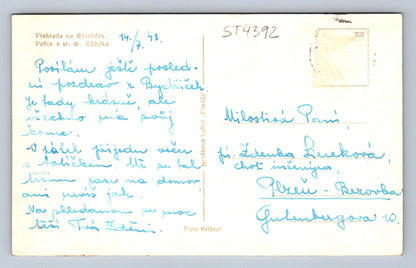 Přehrada na Bystřičce.
Pošta a st. dr. Růžďka
14./7. 43.
ST4392
102
Posílám ještě posled-
ní pozdrav z Bystřičky.
Je tady krásně, ale
všechno má svůj
konec.
V pátek přijedu večer
s tatíčkem. Už se tak
těším zase na domov
ani nevíš jak.
Na shledanou se moc
těší Tvá Zdeni.
Milostivá Paní,
pí. Zdenka
choť inženýra,
Plzeň - Bezovka
Gutenbergova 10.
Foto Réthor